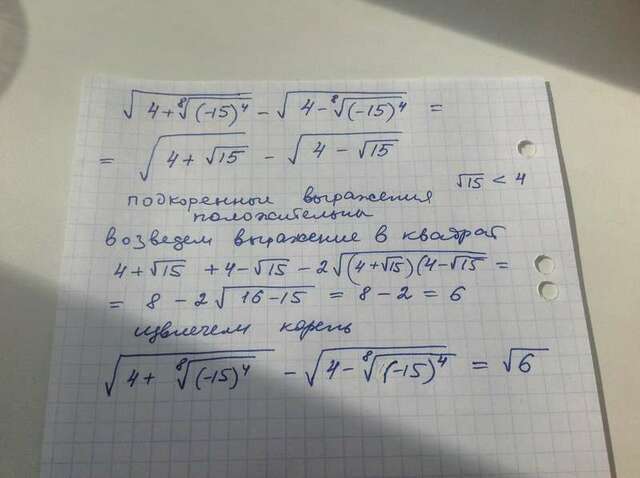 √(4+⁸√(-15)⁴) - √(4-⁸√(-15)⁴) =
= √(4+√15) - √(4-√15)
√15 < 4
подкоренные выражения
положительны
возведем выражение в квадрат
4+√15 +4-√15 -2√(4+√15)(4-√15 =
= 8 - 2√(16-15) = 8-2 = 6
извлечем корень
√(4+ ⁸√(-15)⁴) - √(4-⁸√(-15)⁴) = √6